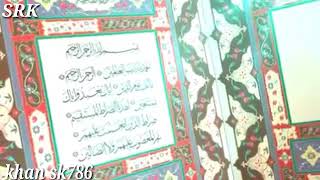 SRK
بسم الله الرحمن الرحيم
الحمد لله رب العالمين الرحمن الرحيم
ملك يوم الدين اياك نعبد واياك
نستعين اهدنا الصراط المستقيم
صراط الذين انعمت عليهم
غير المغضوب عليهم ولا الضالين
khan sk786